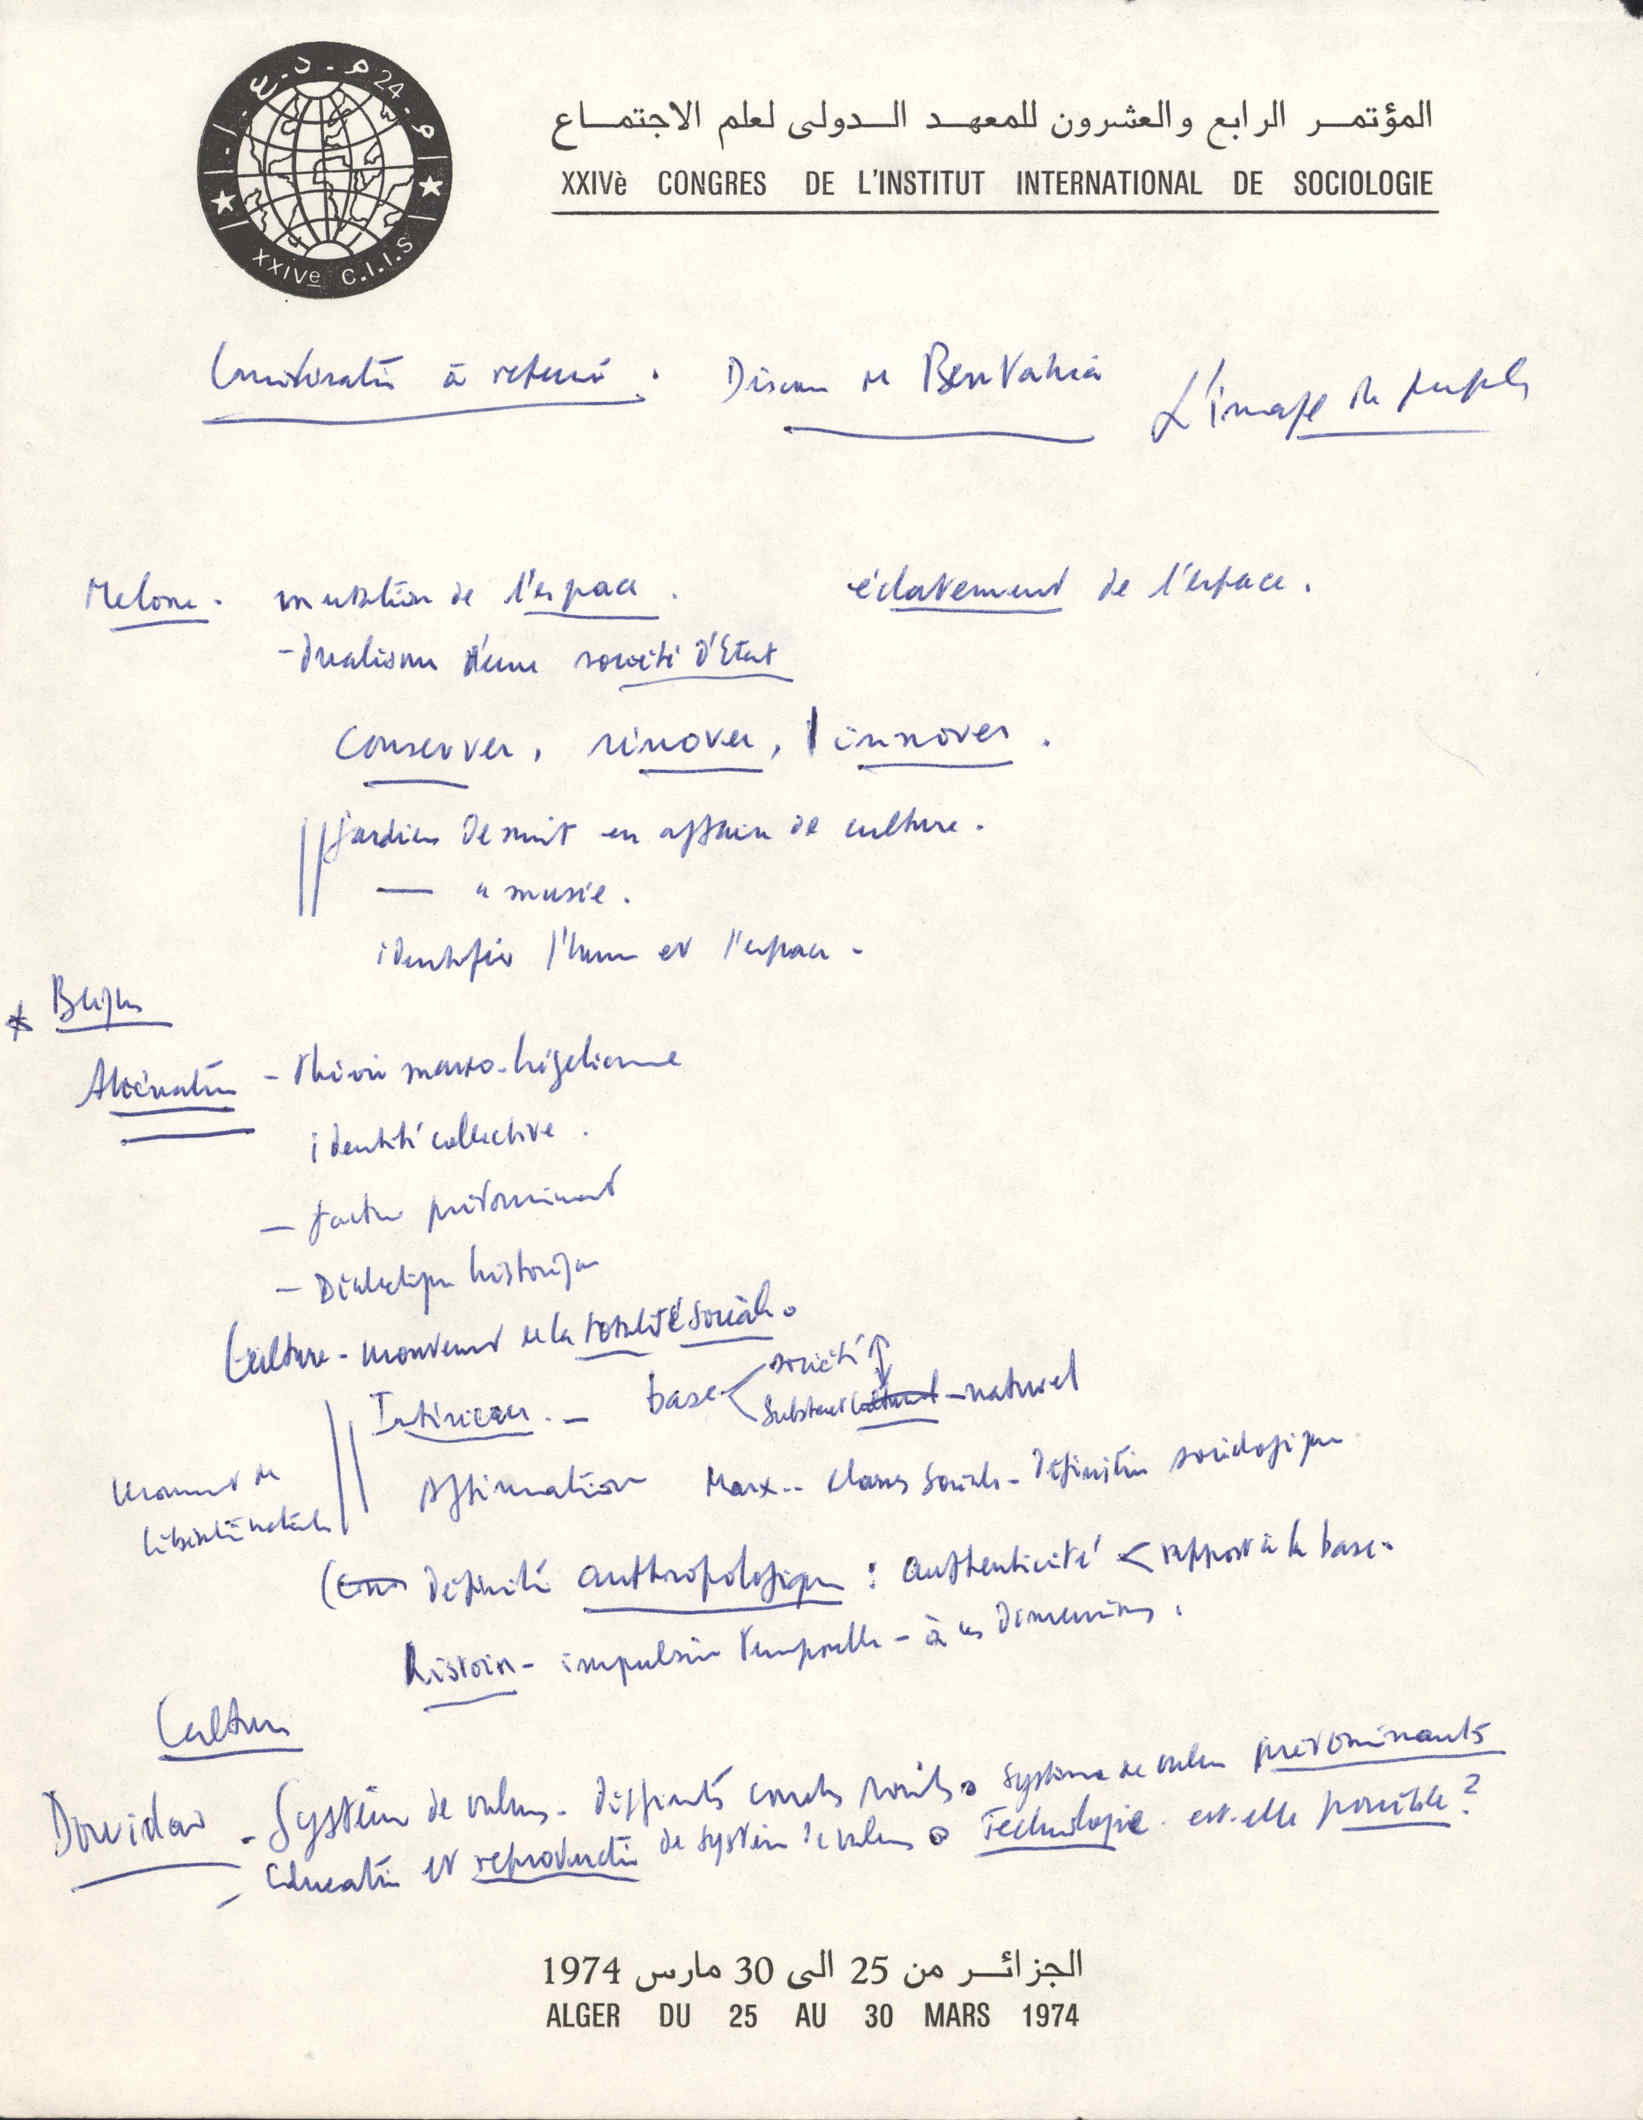 م . د . ع . ا . ا . م . 24
XXIVe C.I.I.S
المؤتمر الرابع والعشرون للمعهد الدولى لعلم الاجتماع
XXIVè CONGRES DE L'INSTITUT INTERNATIONAL DE SOCIOLOGIE
à retenir. Discours de BenYahia L'image du peuple
Melone. mutation de l'espace. éclatement de l'espace.
- dualisme d'une société d'Etat
Conserver, rénover, innover.
gardien de nuit en affaire de culture.
— " musée.
identifier l'homme et l'espace.
Berque
Aliénation - théorie marxo-hégelienne
identité collective.
— facteur prédominant
— Dialectique historique
Culture - mouvement de la totalité sociale.
société
Intérieur. — base
substrat culturel - naturel
Affirmation Marx.. classes sociales - définition sociologique
mouvement de
libération nationale
définition anthropologique : authenticité < rapport à la base.
histoire - impulsion temporelle - à ces dimensions.
Culture
Dowidar - Système de valeurs - différentes couches sociales. système de valeurs prédominants
- Education et reproduction de système de valeurs. Technologie. est-elle possible ?
الجزائر من 25 الى 30 مارس 1974
ALGER DU 25 AU 30 MARS 1974